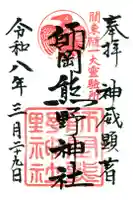 奉拝
神威顕著
関東随一大霊験所
師岡熊野神社
令和八年三月二十九日